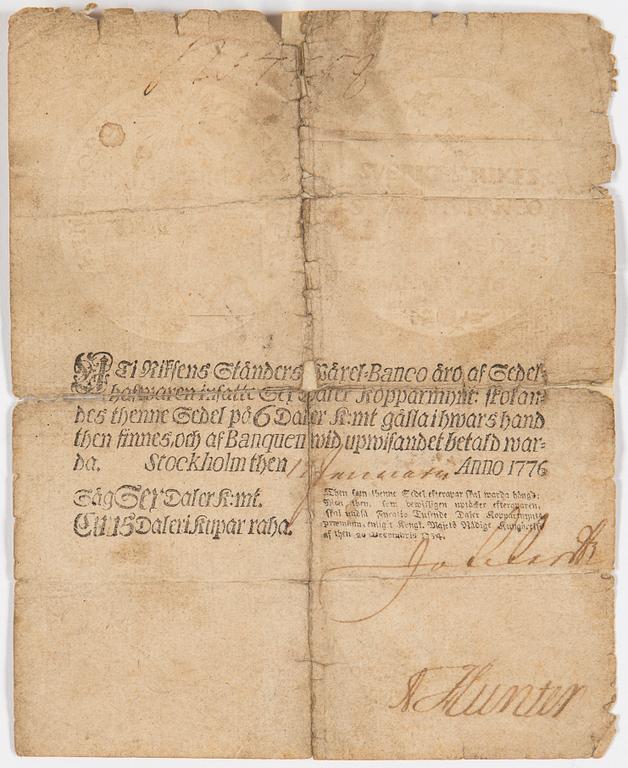 ATi Riksens Ständers Wäxel-Banco äro af Sedel-
hafwaren insatte Sex Daler Kopparmynt: skolan-
des thenne Sedel på 6 Daler K:mt gälla i hwars hand
then finnes, och af Banquen wid upwisandet betald war-
da. Stockholm then 1 Januarii Anno 1776
Säg Sex Daler K:mt.
Cuusi Daleri Kupar raha.
Then som thenne Sedel efterapar skal warda hängd:
Men then, som bewisligen uptäcker efteraparen,
skal undfå Daler Kopparmynt
præmium, enligt Kongl. Maj:ts Nådige Kungörelse
af then 20 Decembris
Hunter